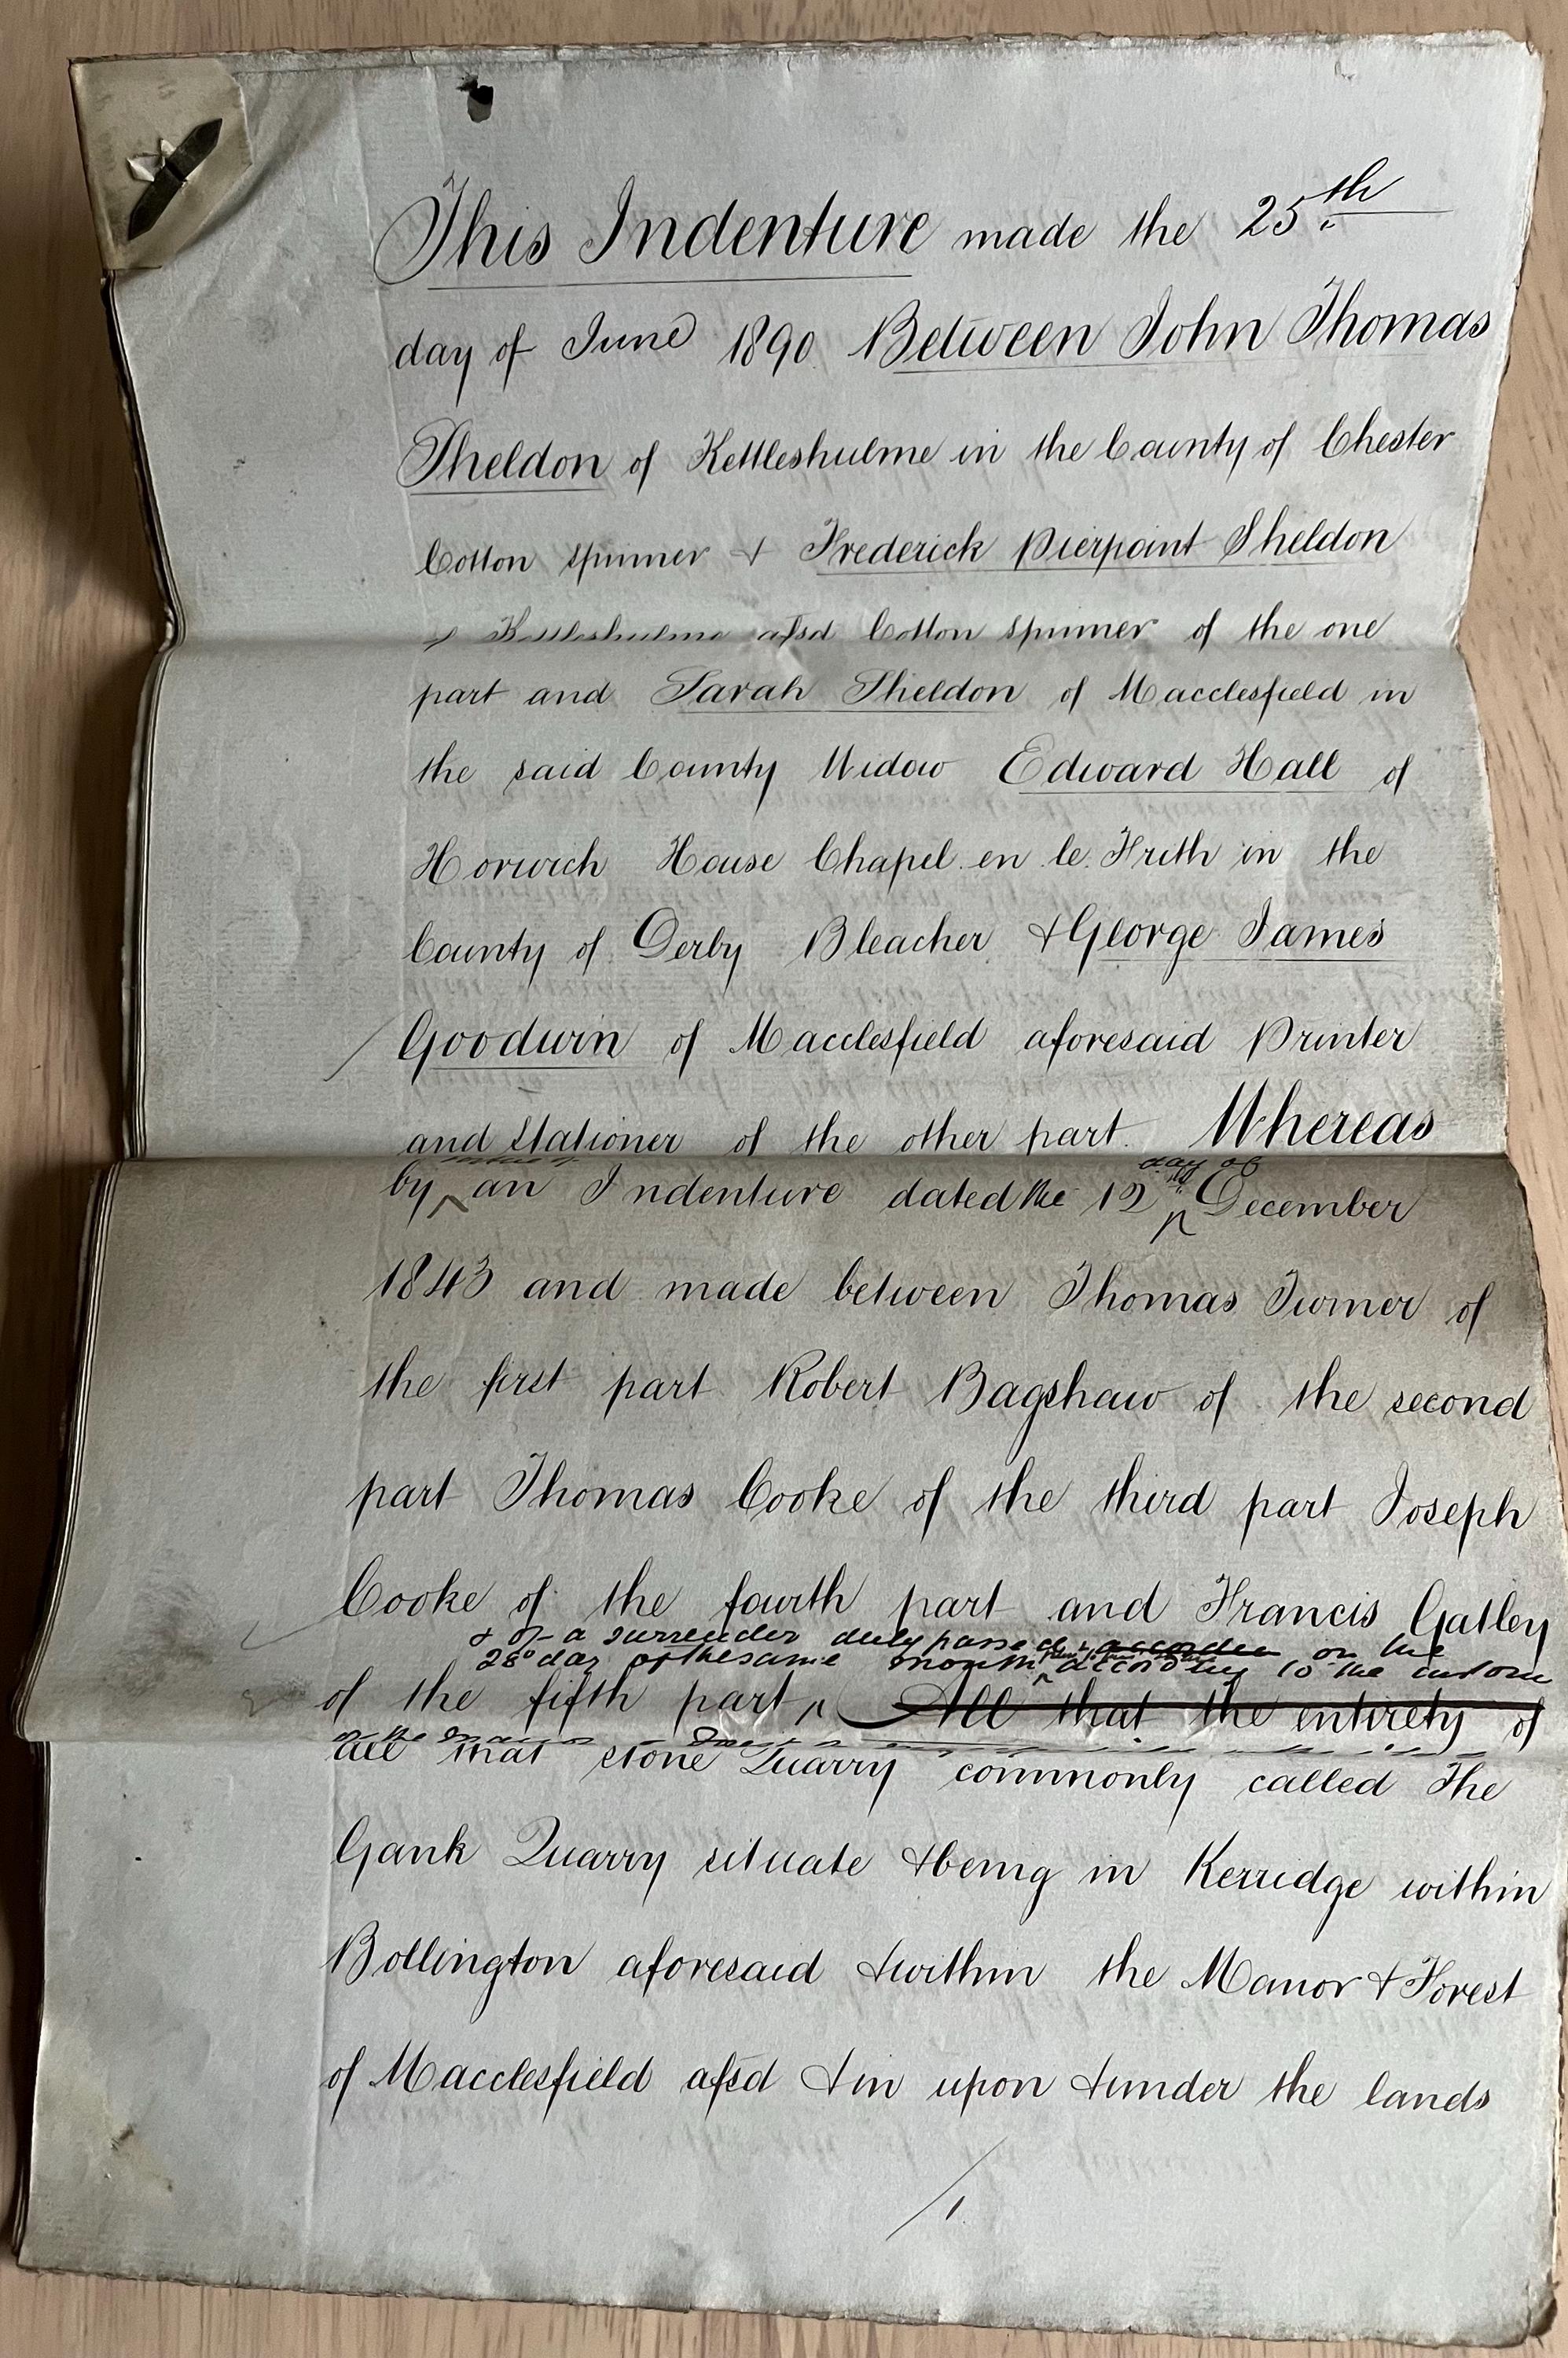 This Indenture made the 25th
day of June 1890 Between John Thomas
Sheldon of Kettleshulme in the County of Chester
Cotton Spinner & Frederick Pierpoint Sheldon
of Kettleshulme afsd Cotton Spinner of the one
part and Sarah Sheldon of Macclesfield in
the said County Widow Edward Hall of
Horwich House Chapel en le Frith in the
County of Derby Bleacher & George James
Goodwin of Macclesfield aforesaid Printer
and Stationer of the other part. Whereas
day of
by an Indenture dated the 12 December
1843 and made between Thomas Turner of
the first part Robert Bagshaw of the second
part Thomas Cooke of the third part Joseph
Cooke of the fourth part and Francis Gatley
& of a surrender duly passed on the
28 day of the same month according to the custom
of the fifth part All that the entirety of
all that stone Quarry commonly called The
Gank Quarry situate & being in Kerridge within
Bollington aforesaid & within the Manor & Forest
of Macclesfield afsd & in upon & under the lands
1